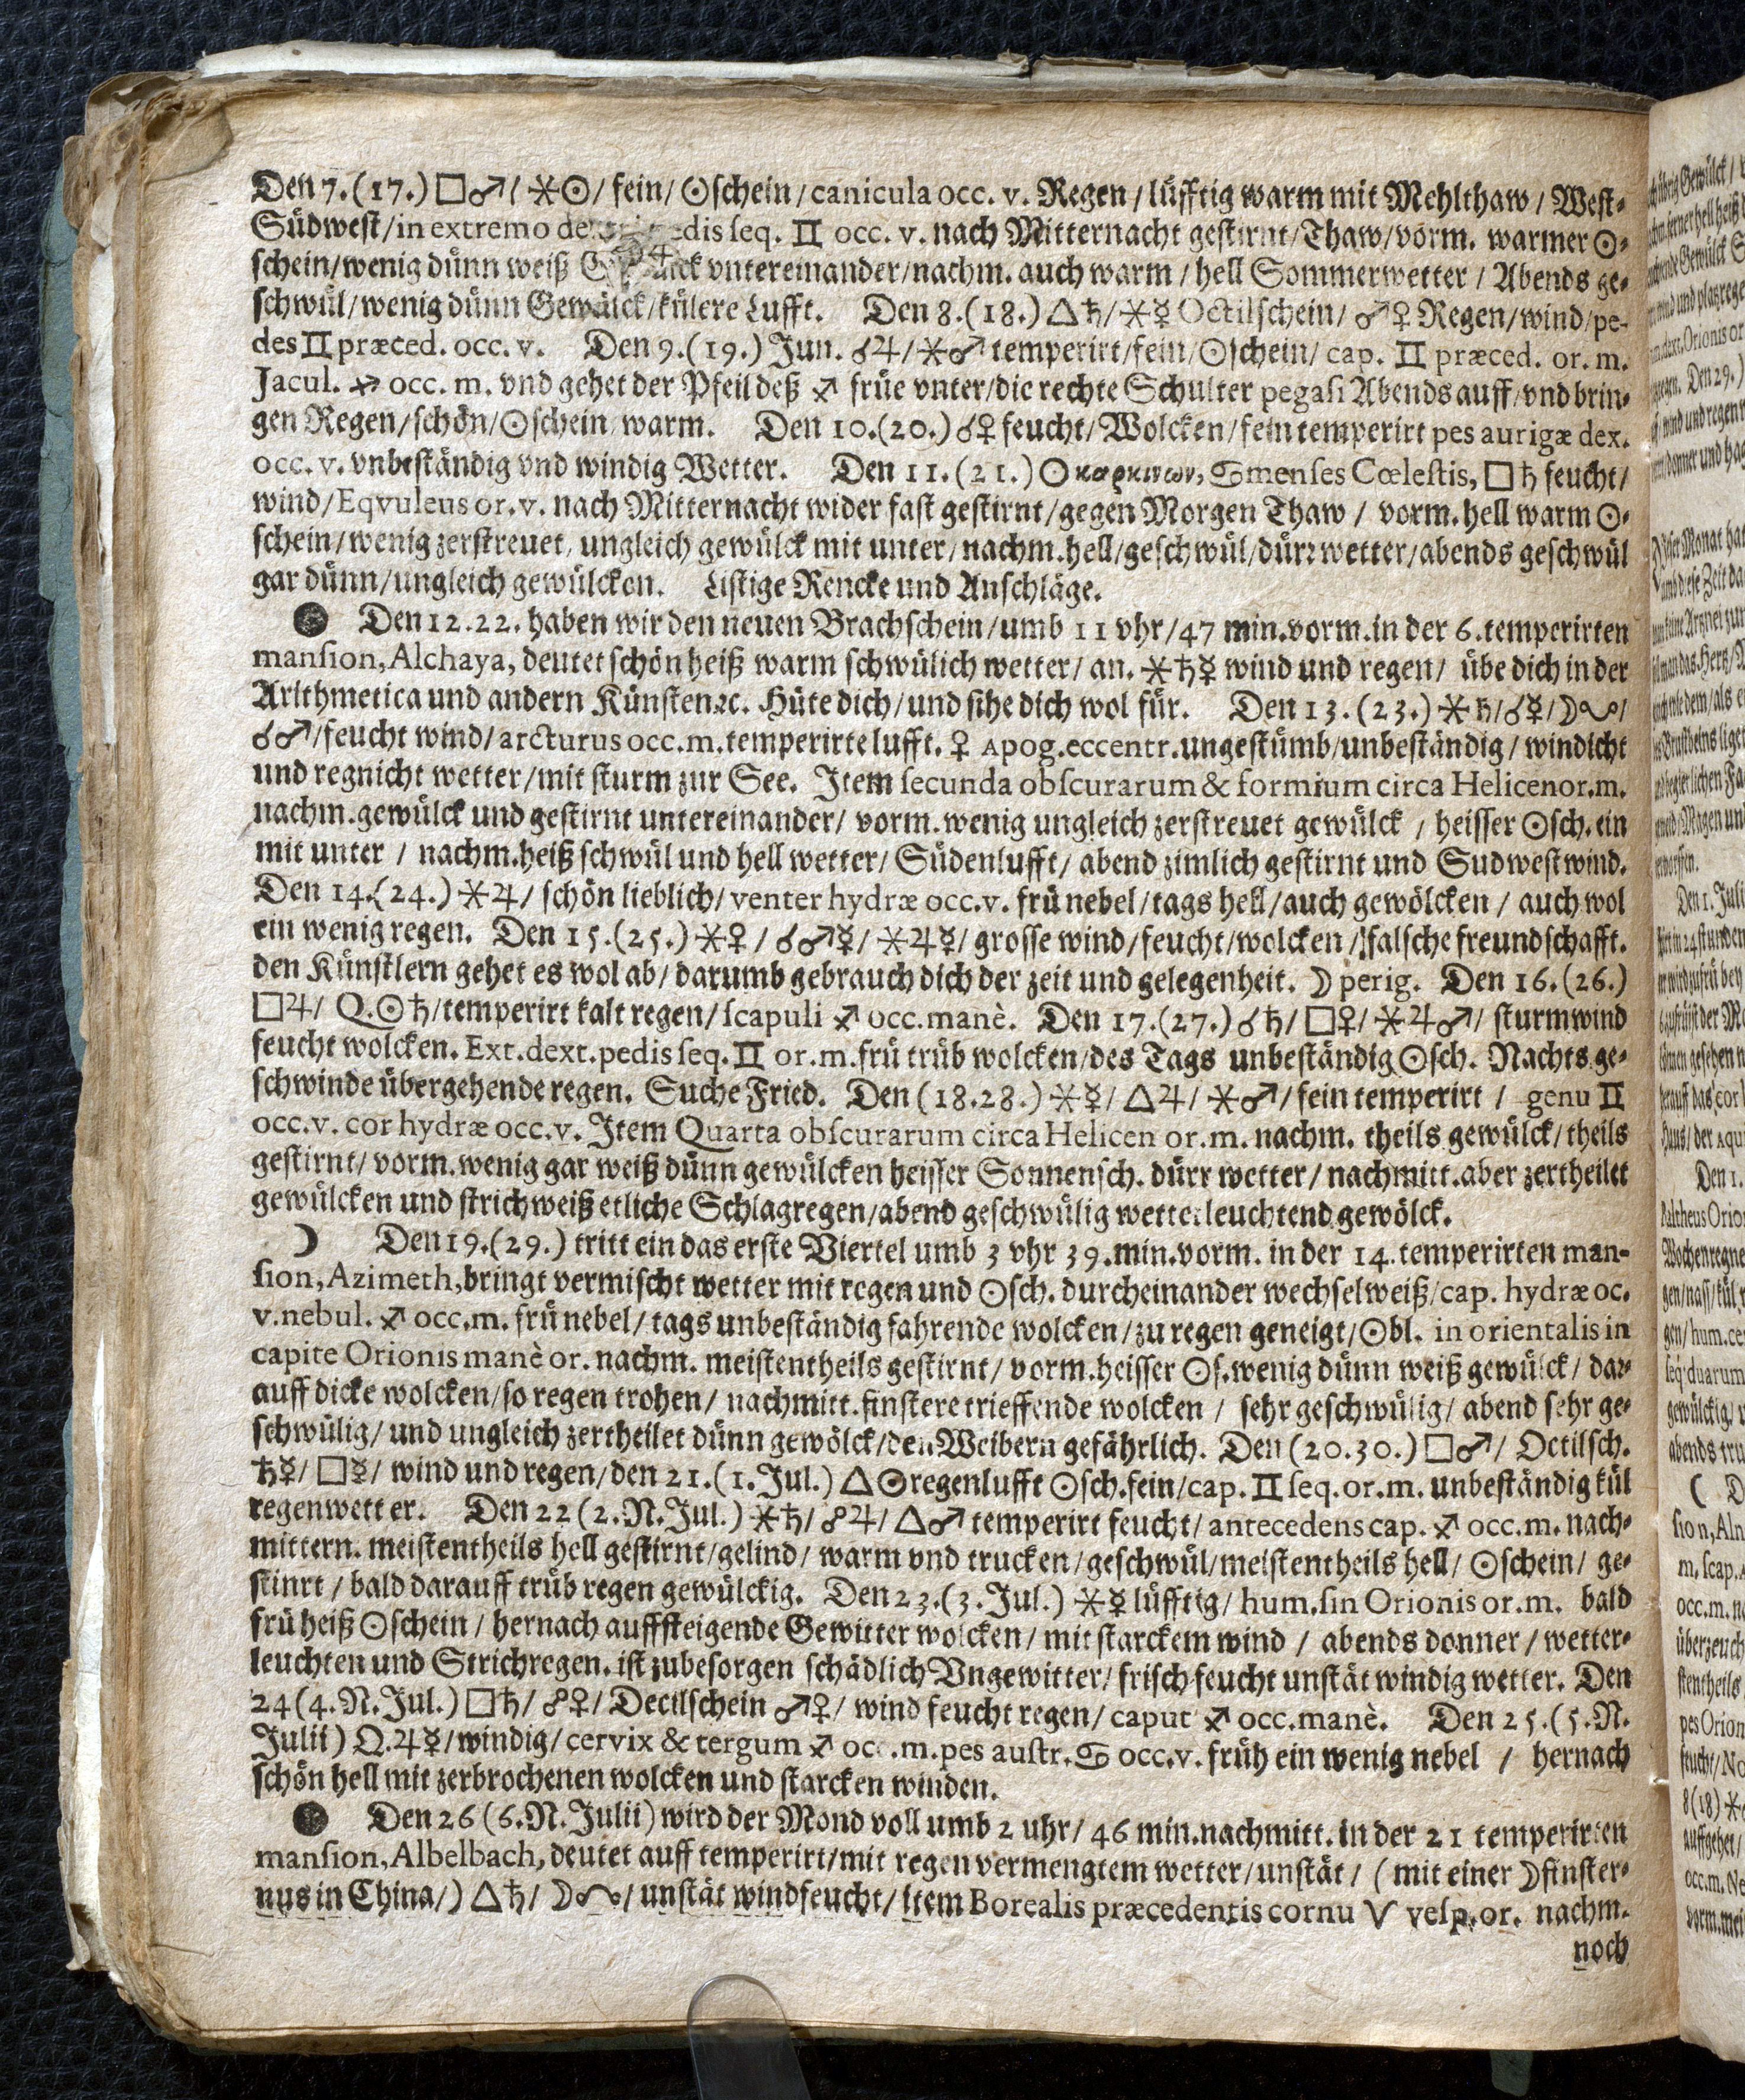 Den 7. (17.) □♂/ ⚹☉/ fein/ ☉schein/ canicula occ. v. Regen/ lüfftig warm mit Mehlthaw/ West-
Südwest/ in extremo seq. ♊ occ. v. nach Mitternacht gestirnt/ Thaw/ vorm. warmer ☉-
schein/ wenig dünn weiß vntereinander/ nachm. auch warm/ hell Sommerwetter/ Abends ge-
schwül/ wenig dünn Gewülck/ külere Lufft. Den 8. (18.) △♄/ ⚹☿ Octilschein/ ♂♀ Regen/ wind/ pe-
des ♊ præced. occ. v. Den 9. (19.) Jun. ☌♃/ ⚹♂ temperirt/ fein/ ☉schein/ cap. ♊ præced. or. m.
Jacul. ♐ occ. m. vnd gehet der Pfeil deß ♐ früe vnter/ die rechte Schulter pegasi Abends auff/ vnd brin-
gen Regen/ schön/ ☉schein warm. Den 10. (20.) ☌♀ feucht/ Wolcken/ fein temperirt pes aurigæ dex.
occ. v. vnbeständig vnd windig Wetter. Den 11. (21.) ☉ καρκινων, ♋ menses Cœlestis, □♄ feucht/
wind/ Eqvuleus or. v. nach Mitternacht wider fast gestirnt/ gegen Morgen Thaw/ vorm. hell warm ☉-
schein/ wenig zerstreuet/ ungleich gewülck mit unter/ nachm. hell/ geschwül/ dürr wetter/ abends geschwül
gar dünn/ ungleich gewülcken. Listige Rencke und Anschläge.
● Den 12. 22. haben wir den neuen Brachschein/ umb 11 vhr/ 47 min. vorm. in der 6. temperirten
mansion, Alchaya, deutet schön heiß warm schwülich wetter/ an. ⚹♄☿ wind und regen/ übe dich in der
Arithmetica und andern Künsten ꝛc. Hüte dich/ und sihe dich wol für. Den 13. (23.) ⚹♄/ ☌☿/ ☽☊/
☌♂/ feucht wind/ arcturus occ. m. temperirte lufft. ♀ Apog. eccentr. ungestümb/ unbeständig/ windicht
und regnicht wetter/ mit sturm zur See. Item secunda obscurarum & formium circa Helicen or. m.
nachm. gewülck und gestirnt untereinander/ vorm. wenig ungleich zerstreuet gewülck/ heisser ☉sch. ein
mit unter/ nachm. heiß schwül und hell wetter/ Südenlufft/ abend zimlich gestirnt und Sudwestwind.
Den 14. (24.) ⚹♃/ schön lieblich/ venter hydræ occ. v. frü nebel/ tags hell/ auch gewölcken/ auch wol
ein wenig regen. Den 15. (25.) ⚹♀/ ☌♂☿/ ⚹♃☿/ grosse wind/ feucht/ wolcken/ falsche freundschafft.
den Künstlern gehet es wol ab/ darumb gebrauch dich der zeit und gelegenheit. ☽ perig. Den 16. (26.)
□♃/ Q. ☉♄/ temperirt kalt regen/ scapuli ♐ occ. manè. Den 17. (27.) ☌♄/ □♀/ ⚹♃♂/ sturmwind
feucht wolcken. Ext. dext. pedis seq. ♊ or. m. frü trüb wolcken/ des Tags unbeständig ☉sch. Nachts ge-
schwinde übergehende regen. Suche Fried. Den (18. 28.) ⚹☿/ △♃/ ⚹♂/ fein temperirt/ genu ♊
occ. v. cor hydræ occ. v. Item Quarta obscurarum circa Helicen or. m. nachm. theils gewülck/ theils
gestirnt/ vorm. wenig gar weiß dünn gewülcken heisser Sonnensch. dürr wetter/ nachmitt. aber zertheilet
gewülcken und strichweiß etliche Schlagregen/ abend geschwülig wetterleuchtend gewölck.
☽ Den 19. (29.) tritt ein das erste Viertel umb 3 vhr 39. min. vorm. in der 14. temperirten man-
sion, Azimeth, bringt vermischt wetter mit regen und ☉sch. durcheinander wechselweiß/ cap. hydræ oc.
v. nebul. ♐ occ. m. frü nebel/ tags unbeständig fahrende wolcken/ zu regen geneigt/ ☉bl. in orientalis in
capite Orionis manè or. nachm. meistentheils gestirnt/ vorm. heisser ☉s. wenig dünn weiß gewülck/ dar-
auff dicke wolcken/ so regen trohen/ nachmitt. finstere trieffende wolcken/ sehr geschwülig/ abend sehr ge-
schwülig/ und ungleich zertheilet dünn gewölck/ den Weibern gefährlich. Den (20. 30.) □♂/ Octilsch.
♄☿/ □☿/ wind und regen/ den 21. (1. Jul.) △☉ regenlufft ☉sch. fein/ cap. ♊ seq. or. m. unbeständig kül
regenwetter. Den 22 (2. N. Jul.) ⚹♄/ ☍♃/ △♂ temperirt feucht/ antecedens cap. ♐ occ. m. nach-
mittern. meistentheils hell gestirnt/ gelind/ warm vnd trucken/ geschwül/ meistentheils hell/ ☉schein/ ge-
stinrt/ bald darauff trüb regen gewülckig. Den 23. (3. Jul.) ⚹☿ lüfftig/ hum. sin Orionis or. m. bald
frü heiß ☉schein/ hernach auffsteigende Gewitter wolcken/ mit starckem wind/ abends donner/ wetter-
leuchten und Strichregen. ist zubesorgen schädlich Vngewitter/ frisch feucht unstät windig wetter. Den
24 (4. N. Jul.) □♄/ ☍♀/ Decilschein ♂♀/ wind feucht regen/ caput ♐ occ. manè. Den 25. (5. N.
Julii) Q. ♃☿/ windig/ cervix & tergum ♐ occ. m. pes austr. ♋ occ. v. früh ein wenig nebel/ hernach
schön hell mit zerbrochenen wolcken und starcken winden.
● Den 26 (6. N. Julii) wird der Mond voll umb 2 uhr/ 46 min. nachmitt. in der 21 temperirten
mansion, Albelbach, deutet auff temperirt/ mit regen vermengtem wetter/ unstät/ (mit einer ☽finster-
nus in China/) △♄/ ☽☊/ unstät windfeucht/ item Borealis præcedentis cornu V vesp. or. nachm.
noch